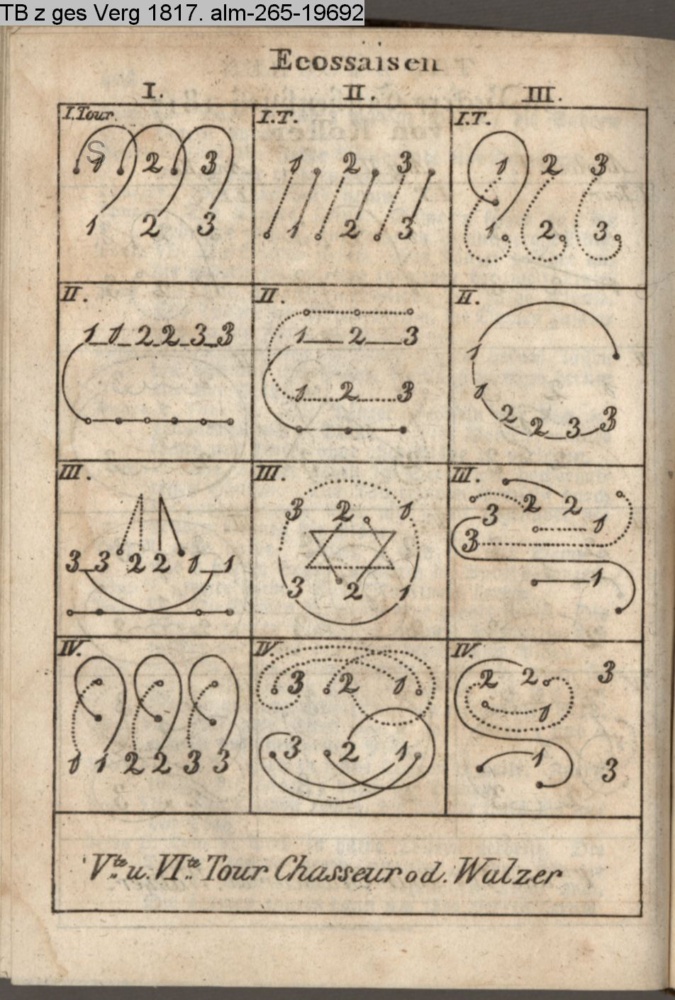 TB z ges Verg 1817. alm-265-19692
Ecossaisen
I. II. III.
I.Tour. I.T. I.T.
S 1 2 3 1 2 3 1 2 3
1 2 3 1 2 3 1 2 3
II. II. II.
1 1 2 2 3 3 1 2 3 1
1 2 3 1 2 2 3 3
III. III. III.
3 3 2 2 1 1 3 2 1 3 2 2 1
3 2 1 3 1
IV. IV. IV.
3 2 1 2 2 3 1
1 1 2 2 3 3 3 2 1 1 3
Vte u. VIte Tour Chasseur od. Walzer